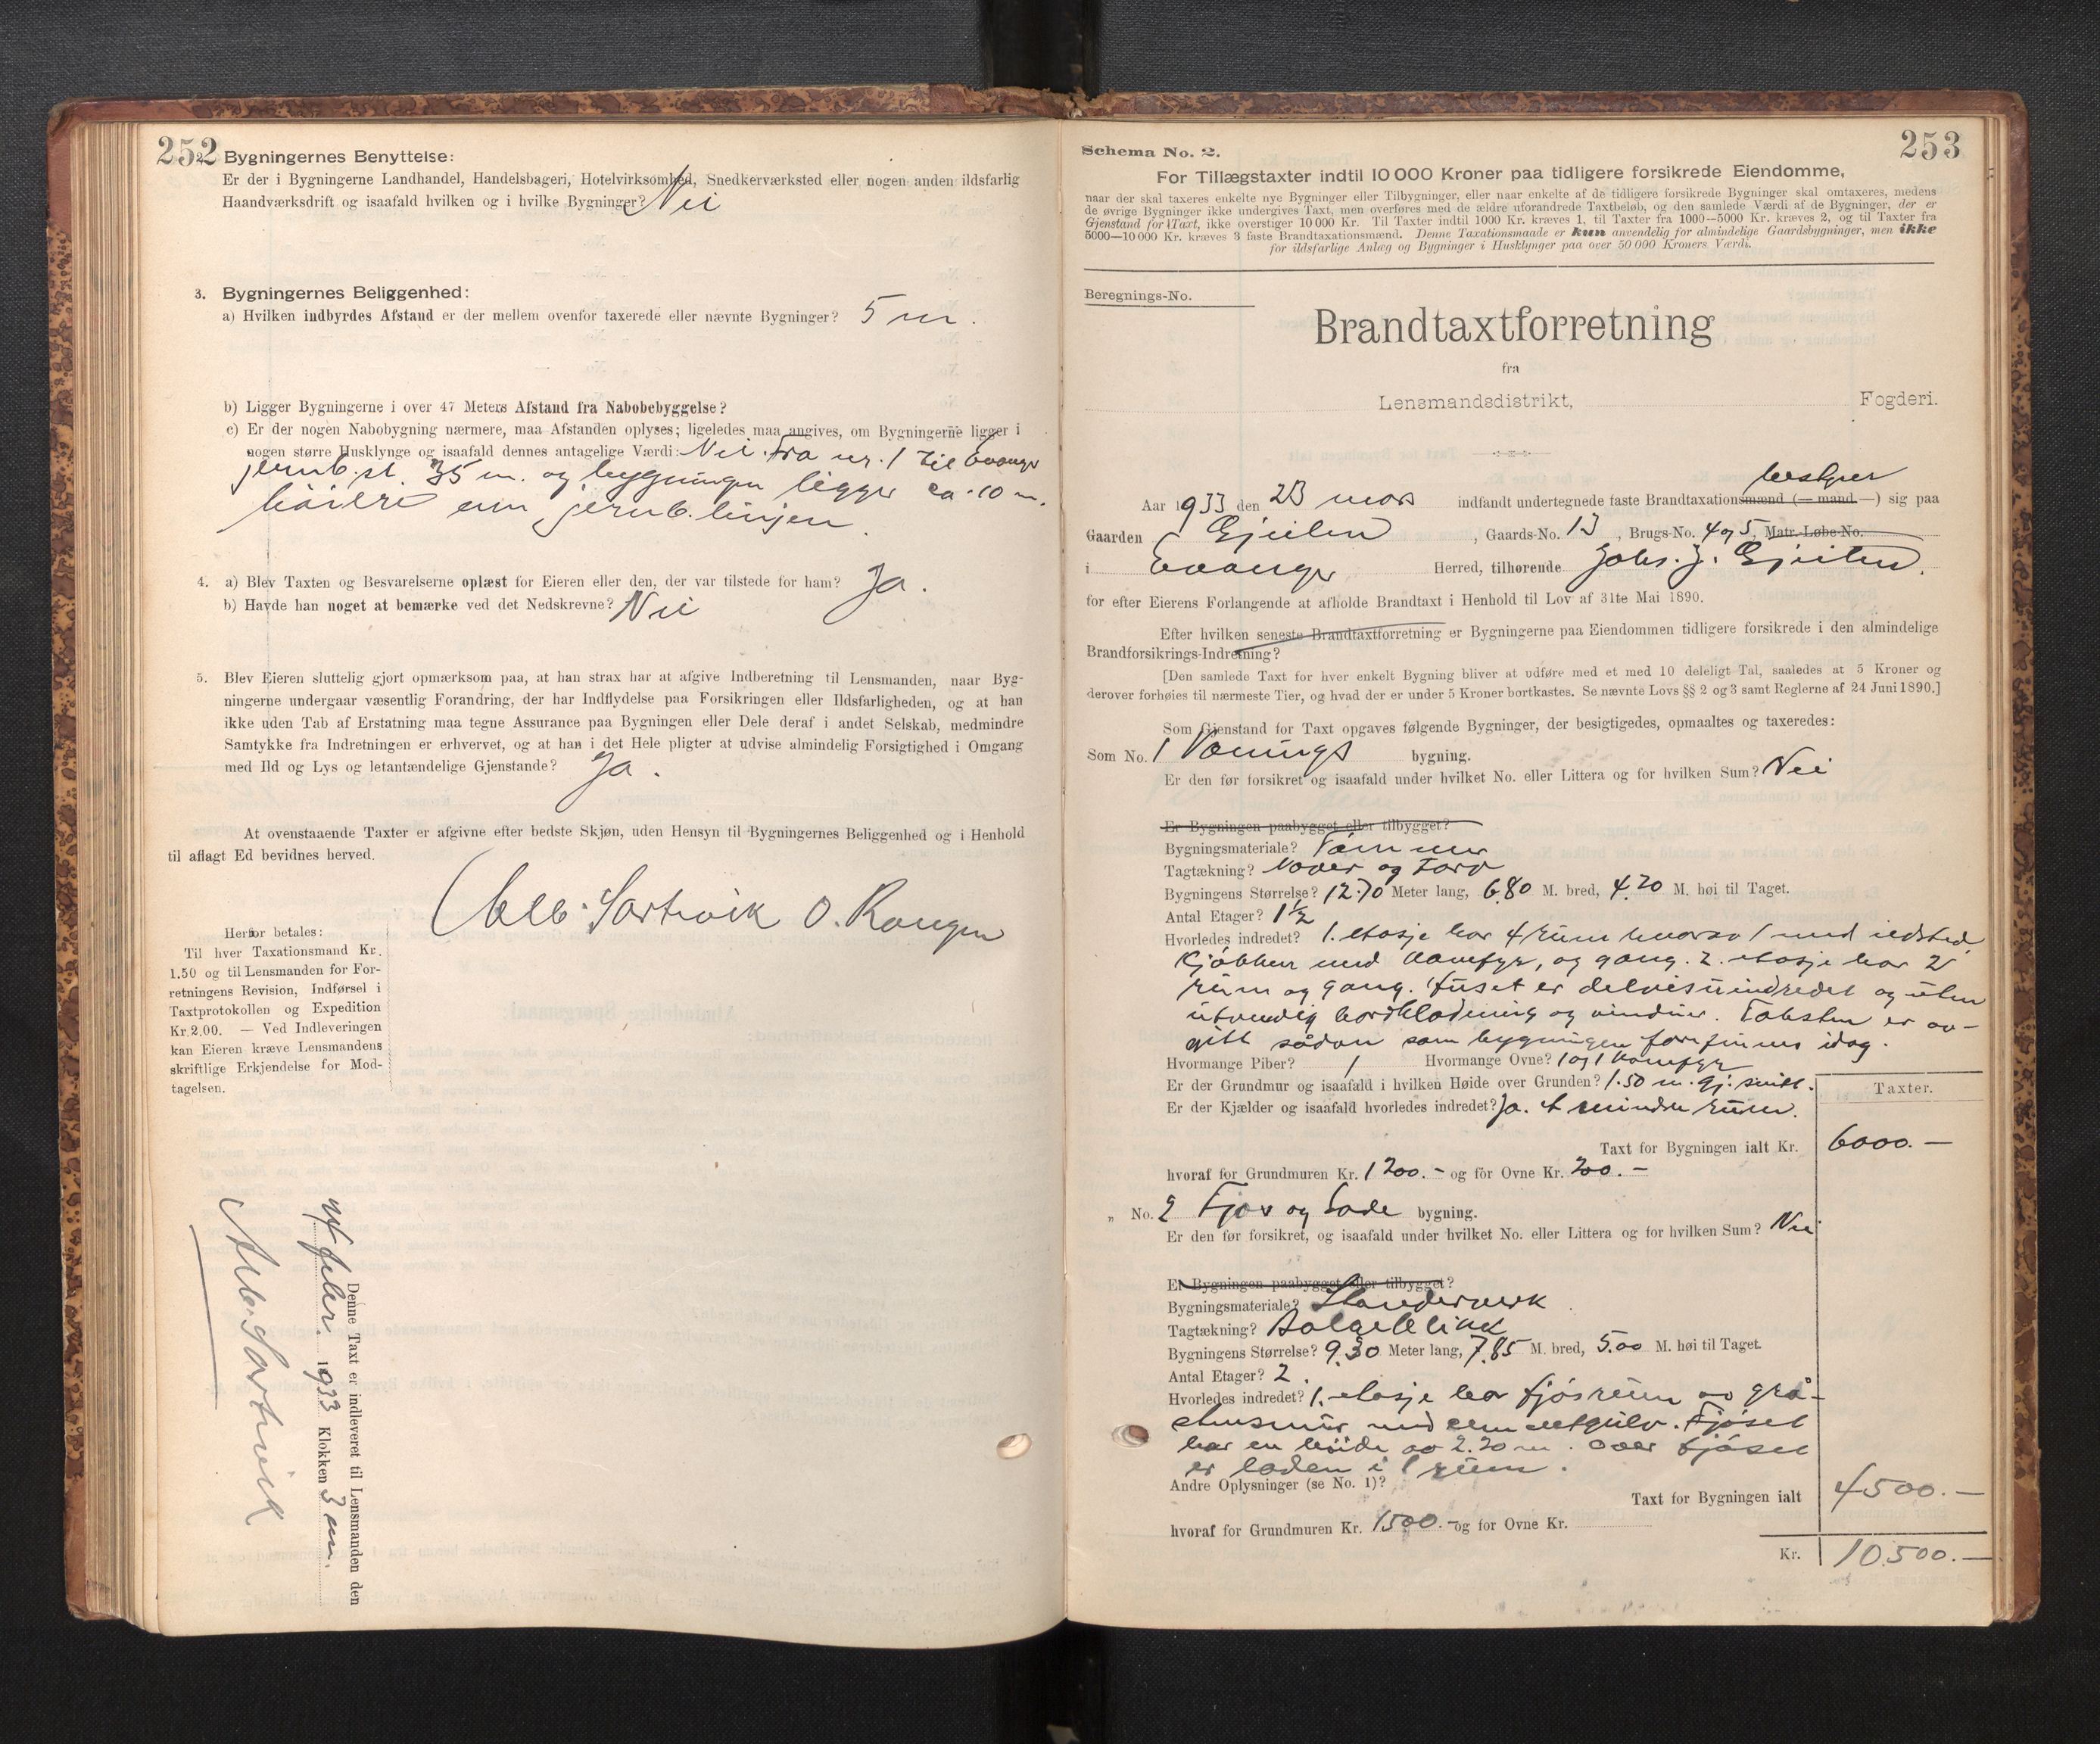 252
2. Bygningernes Benyttelse:
Er der i Bygningerne Landhandel, Handelsbageri, Hotelvirksomhed, Snedkerværksted eller nogen anden ildsfarlig
Haandværksdrift og isaafald hvilken og i hvilke Bygninger? Nei
3. Bygningernes Beliggenhed:
a) Hvilken indbyrdes Afstand er der mellem ovenfor taxerede eller nævnte Bygninger? 5 m.
b) Ligger Bygningerne i over 47 Meters Afstand fra Nabobebyggelse?
c) Er der nogen Nabobygning nærmere, maa Afstanden oplyses; ligeledes maa angives, om Bygningerne ligger i
nogen større Husklynge og isaafald dennes antagelige Værdi: Nei. Fra nr. 1 til Evanger
jernb.st. 35 m. og bygningen ligger ca. 10 m.
høiere enn jernb.linjen.
4. a) Blev Taxten og Besvarelserne oplæst for Eieren eller den, der var tilstede for ham? Ja.
b) Havde han noget at bemærke ved det Nedskrevne? Nei
5. Blev Eieren sluttelig gjort opmærksom paa, at han strax har at afgive Indberetning til Lensmanden, naar Byg-
ningerne undergaar væsentlig Forandring, der har Indflydelse paa Forsikringen eller Ildsfarligheden, og at han
ikke uden Tab af Erstatning maa tegne Assurance paa Bygningen eller Dele deraf i andet Selskab, medmindre
Samtykke fra Indretningen er erhvervet, og at han i det Hele pligter at udvise almindelig Forsigtighed i Omgang
med Ild og Lys og letantændelige Gjenstande? Ja.
At ovenstaaende Taxter er afgivne efter bedste Skjøn, uden Hensyn til Bygningernes Beliggenhed og i Henhold
til aflagt Ed bevidnes herved.
Alb. Sartveit O. Rongen
Herfor betales:
Til hver Taxationsmand Kr.
1.50 og til Lensmanden for For-
retningens Revision, Indførsel i
Taxtprotokollen og Expedition
Kr. 2.00. — Ved Indleveringen
kan Eieren kræve Lensmandens
skriftlige Erkjendelse for Mod-
tagelsen.
Denne Taxt er indleveret til Lensmanden den
1933 Klokken 3 em.
Alb. Sartveit
253
Schema No. 2.
For Tillægstaxter indtil 10 000 Kroner paa tidligere forsikrede Eiendomme,
naar der skal taxeres enkelte nye Bygninger eller Tilbygninger, eller naar enkelte af de tidligere forsikrede Bygninger skal omtaxeres, medens
de øvrige Bygninger ikke undergives Taxt, men overføres med de ældre uforandrede Taxtbeløb, og den samlede Værdi af de Bygninger, der er
Gjenstand for Taxt, ikke overstiger 10 000 Kr. Til Taxter indtil 1000 Kr. kræves 1, til Taxter fra 1000—5000 Kr. kræves 2, og til Taxter fra
5000—10 000 Kr. kræves 3 faste Brandtaxationsmænd. Denne Taxationsmaade er kun anvendelig for almindelige Gaardsbygninger, men ikke
for ildsfarlige Anlæg og Bygninger i Husklynger paa over 50 000 Kroners Værdi.
Beregnings-No.
Brandtaxtforretning
fra
Lensmandsdistrikt, Fogderi.
bestyrer
Aar 1933 den 23 mars indfandt undertegnede faste Brandtaxationsmænd (— mand —) sig paa
Gaarden Gjeilen, Gaards-No. 13, Brugs-No. 4 og 5, Matr.-Løbe-No.
i Evanger Herred, tilhørende Johs. J. Gjeilen.
for efter Eierens Forlangende at afholde Brandtaxt i Henhold til Lov af 31te Mai 1890.
Efter hvilken seneste Brandtaxtforretning er Bygningerne paa Eiendommen tidligere forsikrede i den almindelige
Brandforsikrings-Indretning?
[Den samlede Taxt for hver enkelt Bygning bliver at udføre med et med 10 deleligt Tal, saaledes at 5 Kroner og
derover forhøies til nærmeste Tier, og hvad der er under 5 Kroner bortkastes. Se nævnte Lovs §§ 2 og 3 samt Reglerne af 24 Juni 1890.]
Som Gjenstand for Taxt opgaves følgende Bygninger, der besigtigedes, opmaaltes og taxeredes:
Som No. 1 Vånings bygning.
Er den før forsikret og isaafald under hvilket No. eller Littera og for hvilken Sum? Nei
Er Bygningen paabygget eller tilbygget?
Bygningsmateriale? Tømmer
Tagtækning? Never og torv
Bygningens Størrelse? 12.70 Meter lang, 6.80 M. bred, 4.20 M. høi til Taget.
Antal Etager? 1½
Hvorledes indredet? 1. etasje har 4 rum hvorav 1 med ildsted,
kjøkken med komfyr, og gang. 2. etasje har 2
rum og gang. Huset er delvis uindredet og uten
utvendig bordkledning og vinduer. Taksten er av-
gitt sådan som bygningen forefinnes idag.
Hvormange Piber? 1 Hvormange Ovne? 1 og 1 komfyr
Er der Grundmur og isaafald i hvilken Høide over Grunden? 1.50 m. gj.snitt.
Er der Kjælder og isaafald hvorledes indredet? Ja. et mindre rum.
Taxter.
Taxt for Bygningen ialt Kr. 6000.—
hvoraf for Grundmuren Kr. 1200.— og for Ovne Kr. 200.—
„ No. 2 Fjøs og Lade bygning.
Er den før forsikret, og isaafald under hvilket No. eller Littera og for hvilken Sum? Nei
Er Bygningen paabygget eller tilbygget?
Bygningsmateriale? Stenderverk
Tagtækning? Bølgeblikk
Bygningens Størrelse? 9.30 Meter lang, 7.85 M. bred, 5.00 M. høi til Taget.
Antal Etager? 2.
Hvorledes indredet? 1. etasje har fjøsrum av grå-
stensmur med cementgulv. Fjøset
har en høide av 2.20 m. Over fjøset
er laden i 1 rum.
Andre Oplysninger (se No. 1)?
Taxt for Bygningen ialt 4500.—
hvoraf for Grundmuren Kr. 1500.— og for Ovne Kr.
Kr. 10.500.—